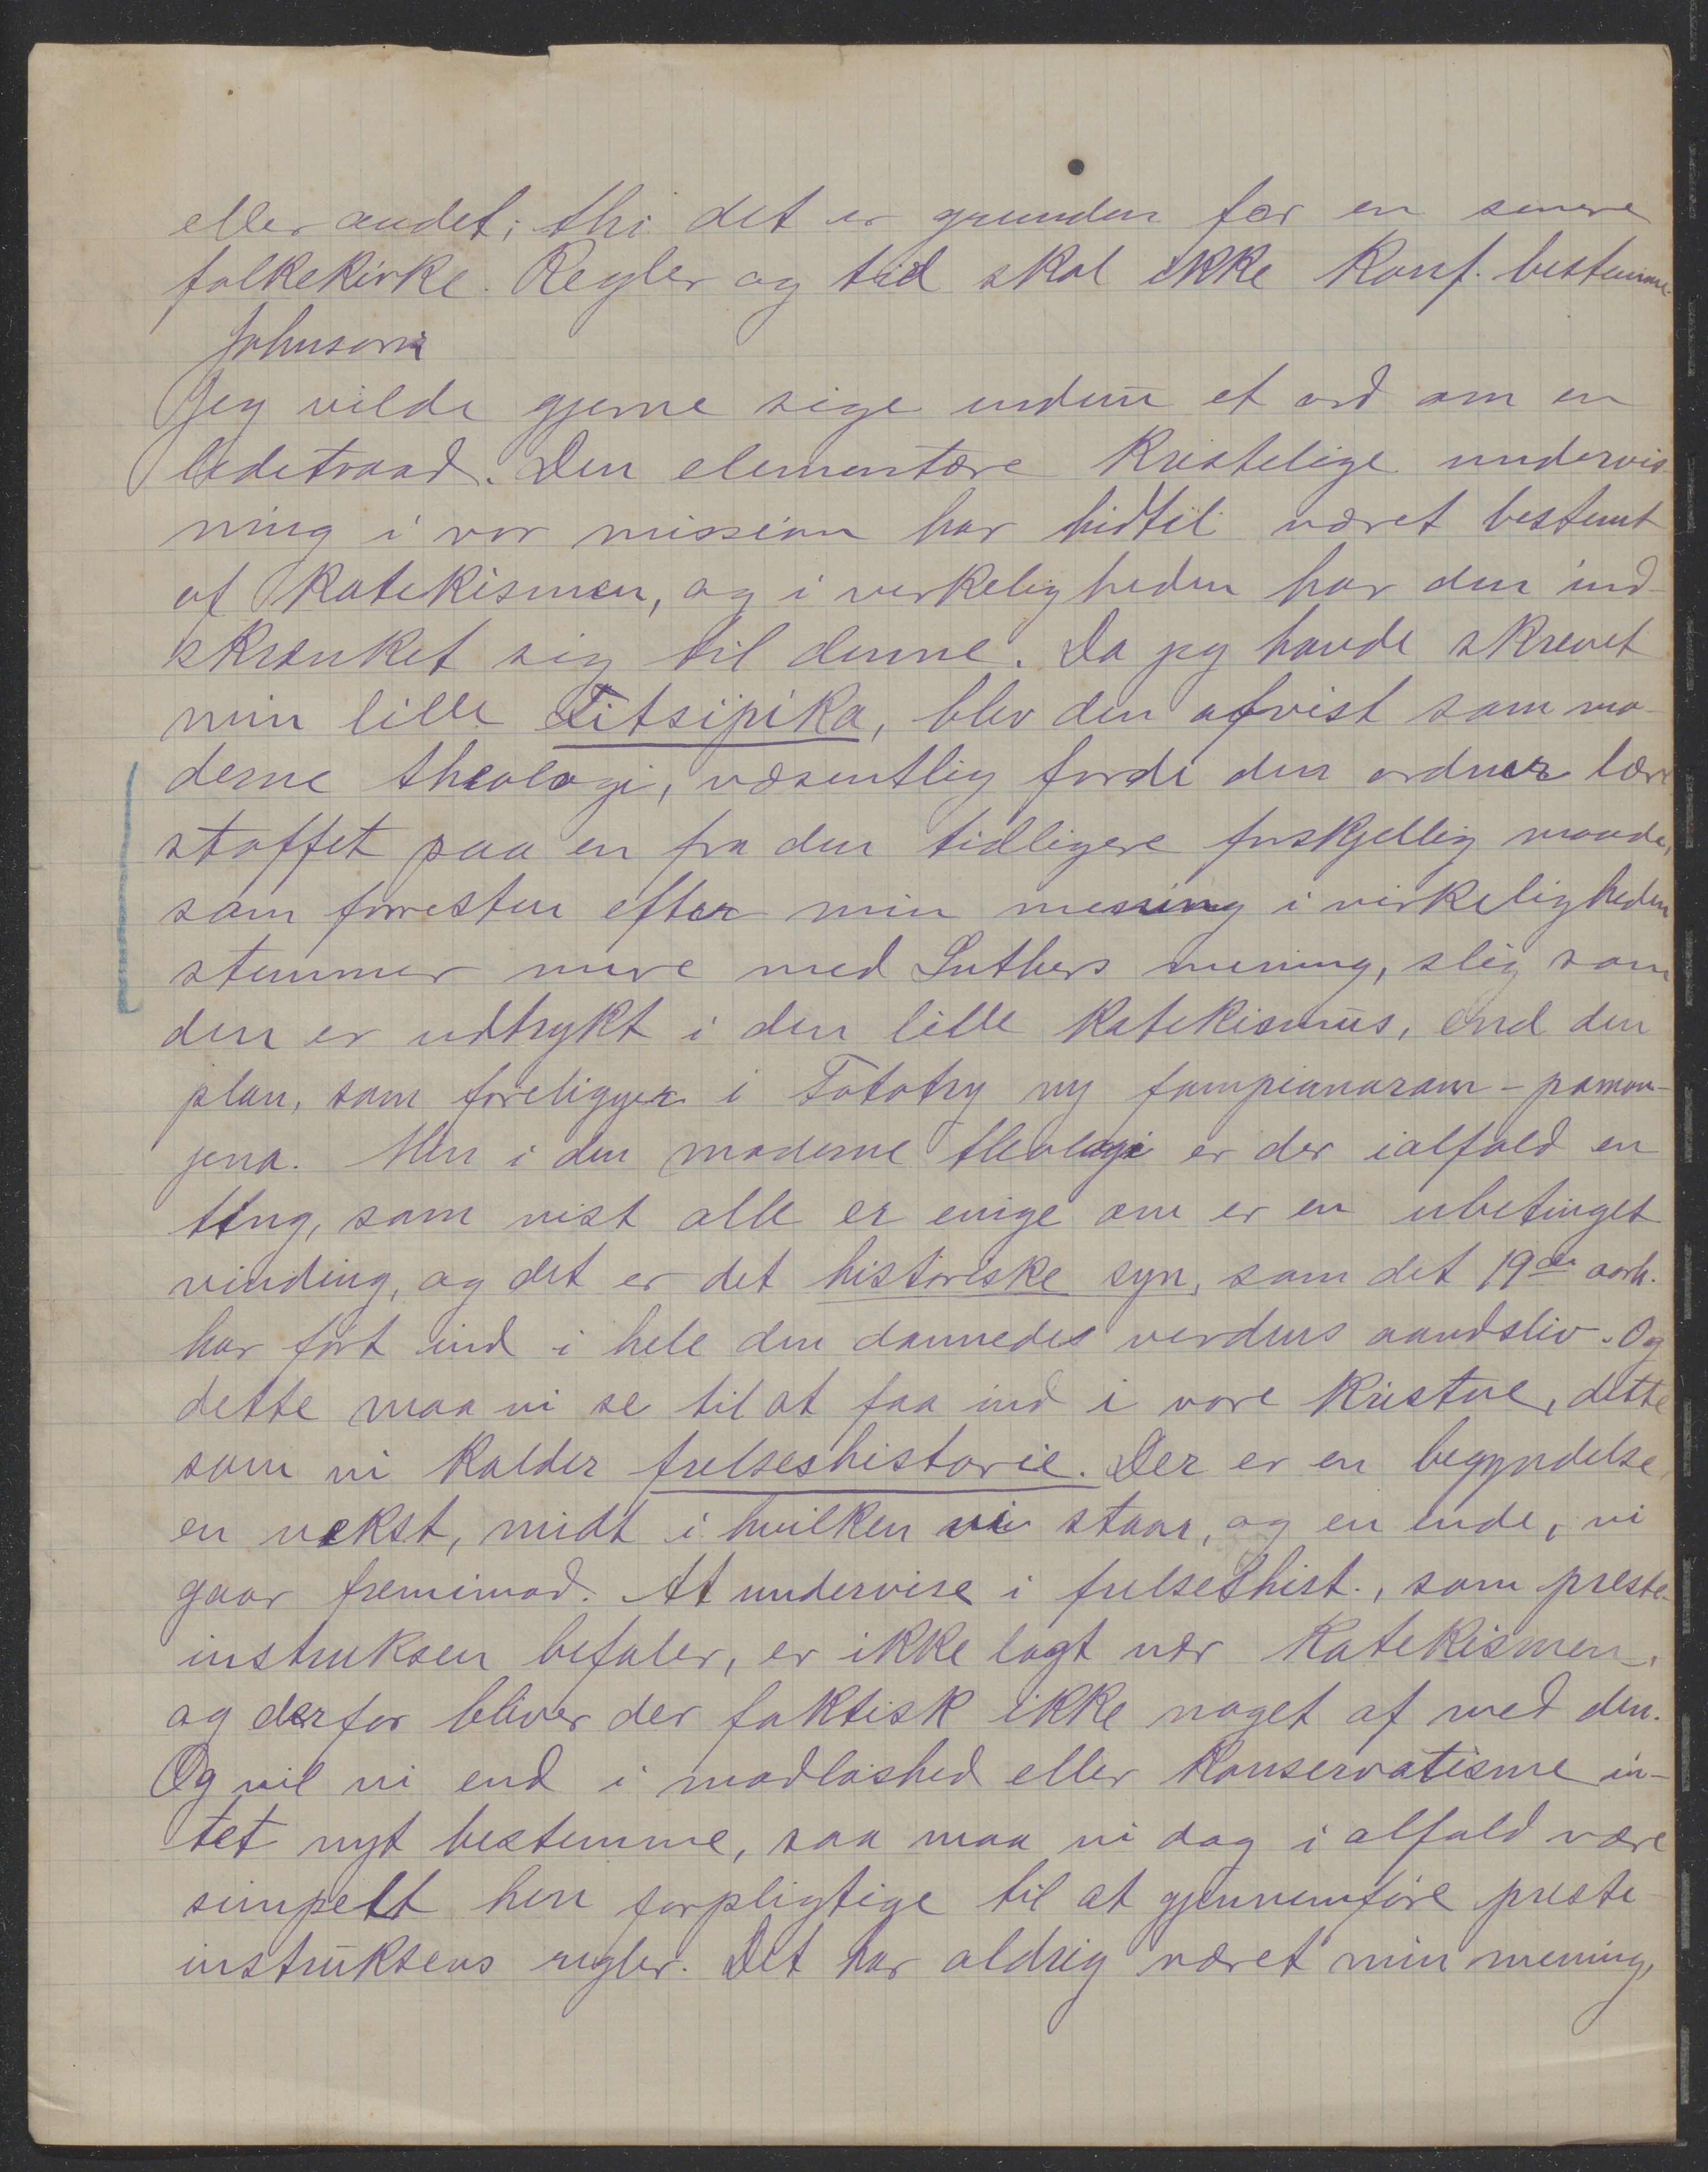 eller andet; thi det er grunden for en senere
folkekirke. Regler og tid skal ikke Konf. bestemme.
Johnson
Jeg vilde gjerne sige endnu et ord om en
ledetraad. Den elementære kristelige undervis
ning i vor mission har hidtil været bestemt
af Katekismen, og i verkeligheden har den ind-
skrænket sig til denne. Da jeg havde skrevet
min lille Titsipika, blev den afvist som mo-
derne theologi, væsentlig fordi den ordner lære
stoffet paa en fra den tidligere forskjellig maade,
som forresten efter min mening i virkeligheden
stemmer mere med Luthers mening, slig som
den er udtrykt i den lille Katekismus, end den
plan, som foreligger i Fototry ny fampianaram-pamon-
jena. Men i den moderne theologi er der ialfald en
ting, som vist alle er enige om er en ubetinget
vinding, og det er det historiske syn, som det 19de aarh.
har ført ind i hele den dannedes verdens aandsliv. Og
dette maa vi se til at faa ind i vore kristne, dette
som vi kalder frelseshistorie. Der er en begyndelse,
en vekst, midt i hvilken vi staar, og en ende, vi
gaar fremimod. At undervise i frelseshist., som preste-
instruksen befaler, er ikke lagt nær Katekismen,
og derfor bliver der faktisk ikke noget af med den.
Og vil vi end i modløshed eller Konservatisme in-
tet nyt bestemme, saa maa vi dog i alfald være
simpelt hen forpligtige til at gjennemføre preste-
instruksens regler. Det har aldrig været min mening,